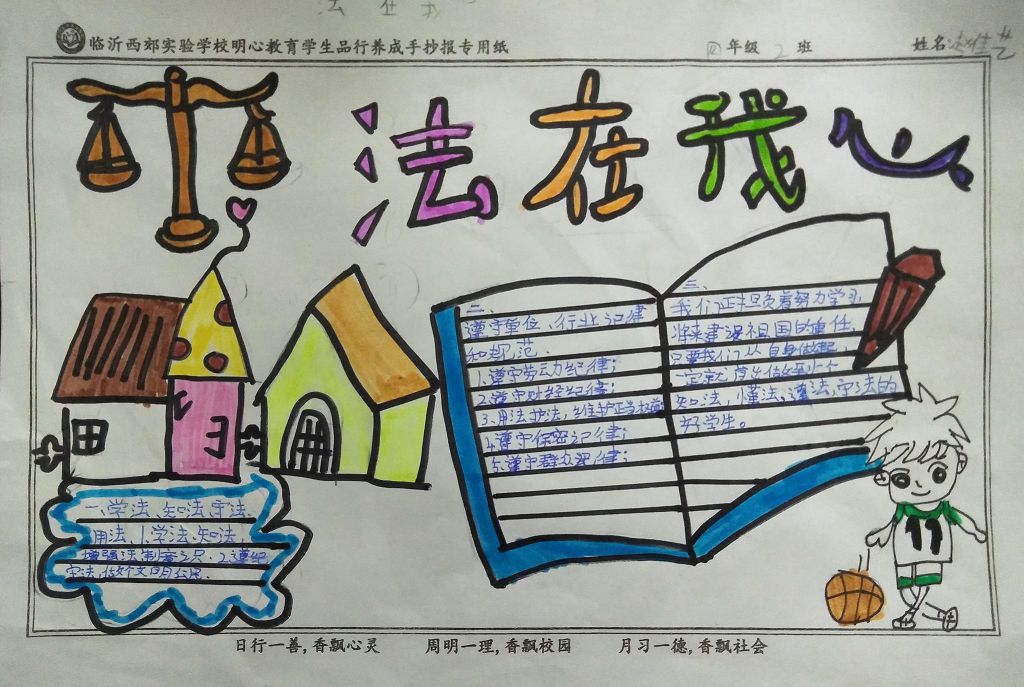 法在我
临沂西郊实验学校明心教育学生品行养成手抄报专用纸 四年级 2 班 姓名:
法在我心
一、学法、知法、守法、
用法、1.学法、知法,
增强法制意识 2.遵纪
守法,做个文明公民.
二、
遵守单位、行业纪律
和规范.
1.遵守劳动纪律;
2.遵守财经纪律;
3.用法护法,维护正当权益
4.遵守保密纪律;
5.遵守群众纪律;
三、
我们正担负着努力学习
将来建设祖国的重任,
只要我们从自身做起,
一定就 做 个
知法,懂法,遵法,守法的
好学生。
11
日行一善,香飘心灵 周明一理,香飘校园 月习一德,香飘社会